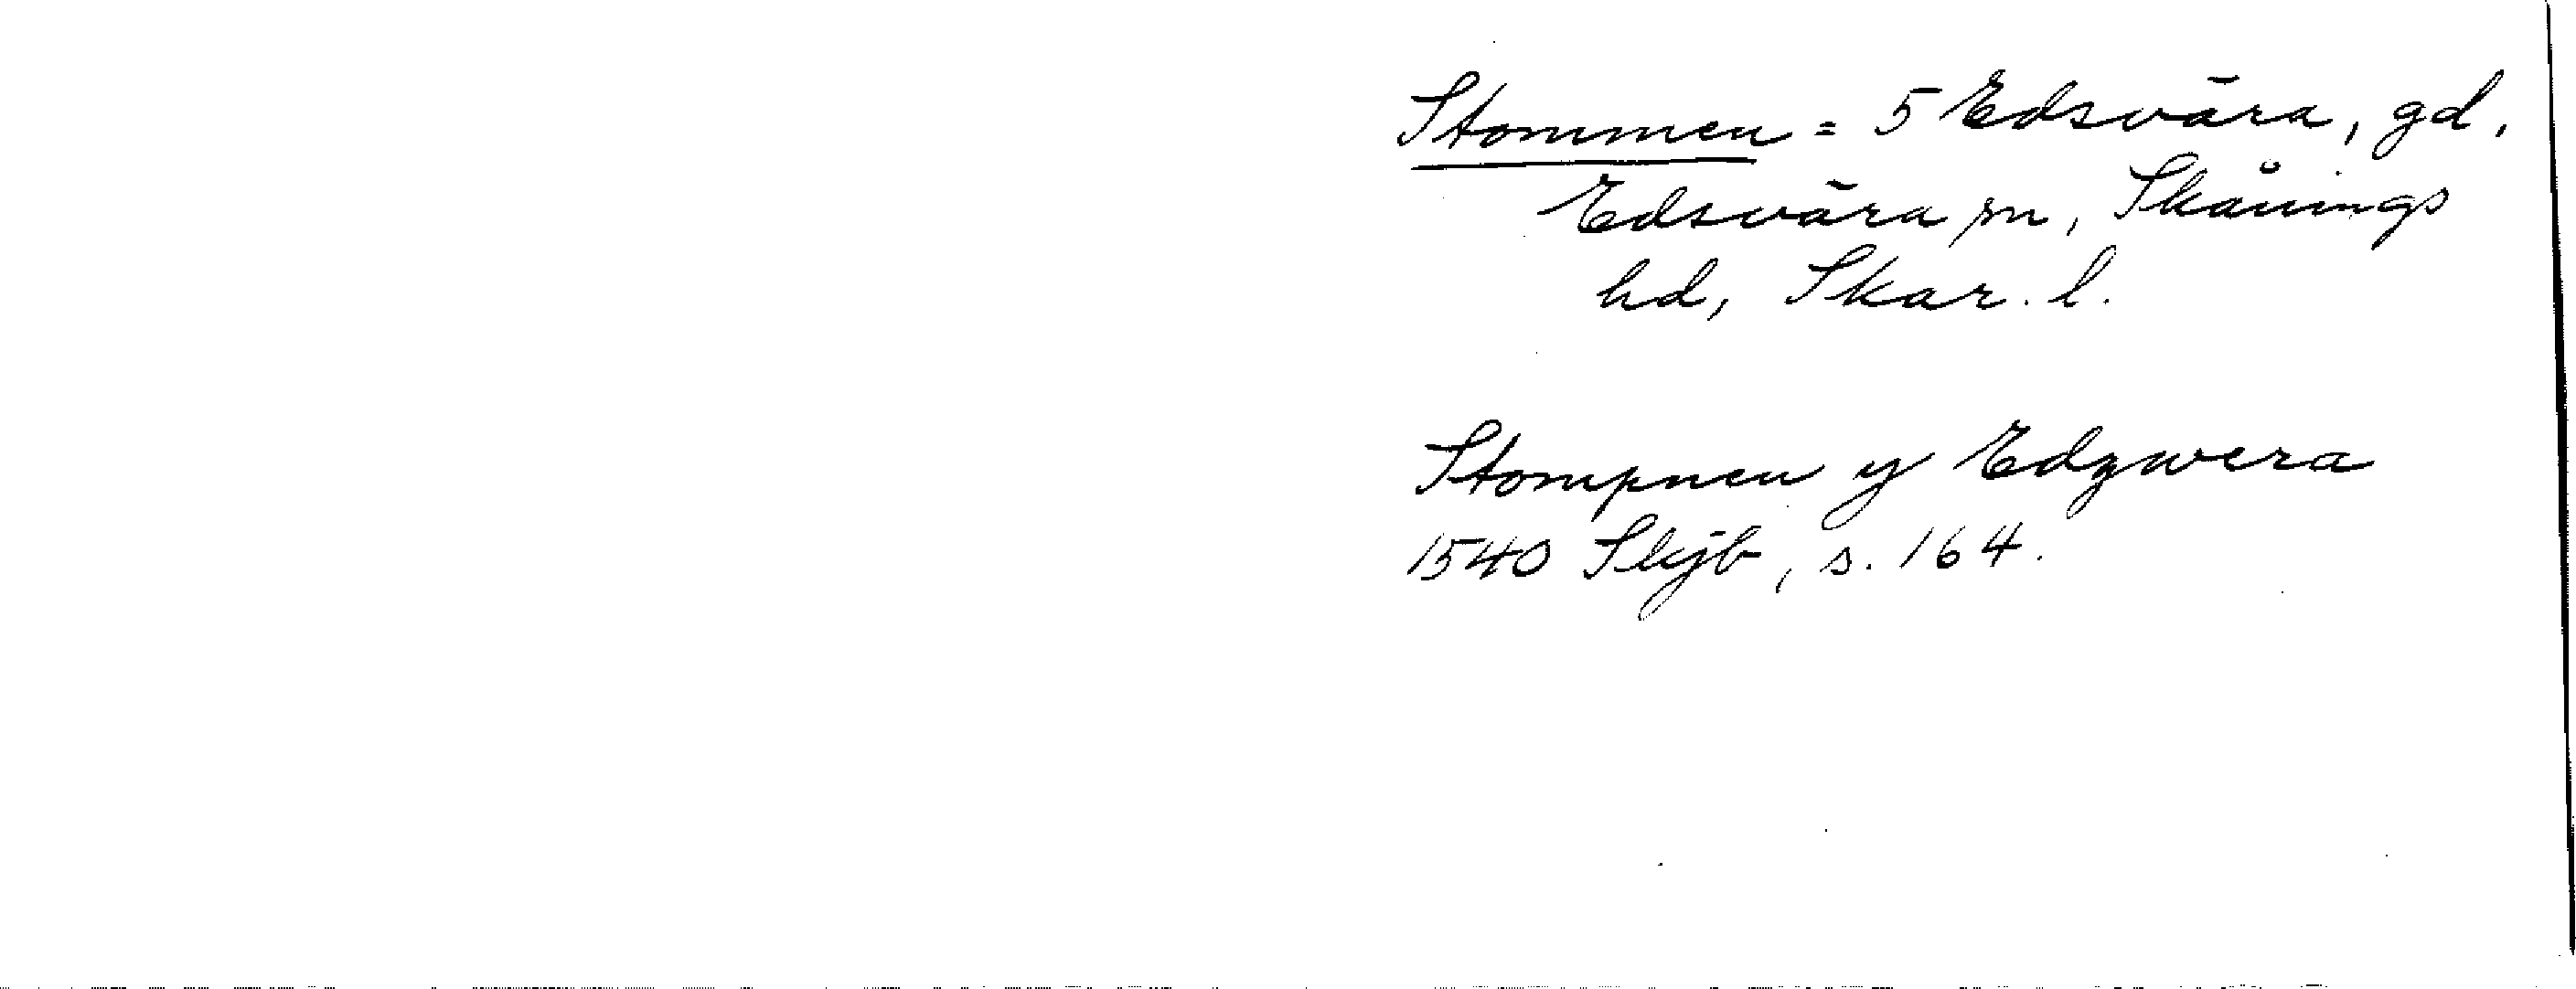 Stommen = 5 Edsvära, gd,
Edsvära sn, Skånings
hd, Skar. l.
Stompnen y Edzwera
1540 Skjb, s. 164.